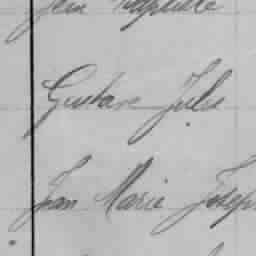 Jean Baptiste
Gustave Jules
Jean Marie Joseph